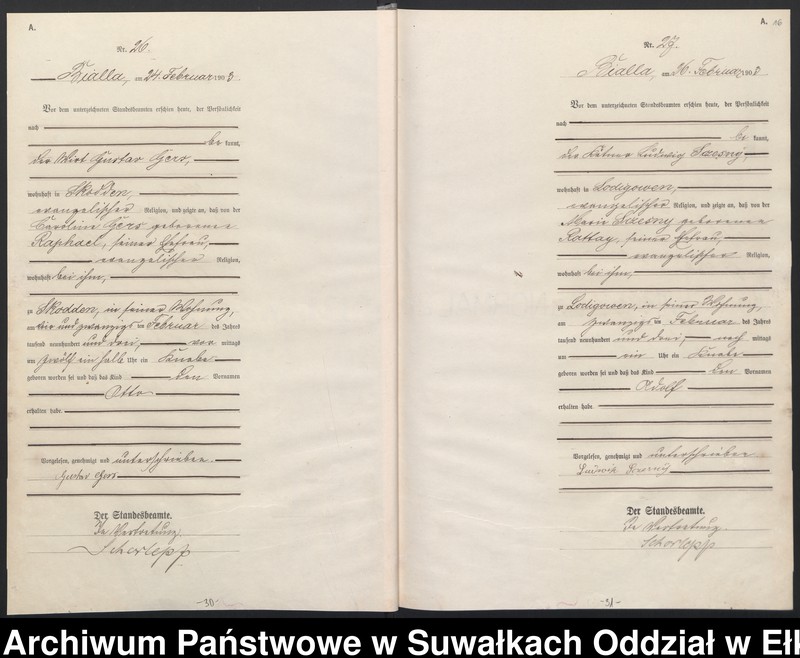 A.
Nr. 26.
Bialla, am 24. Februar 1903.
Vor dem unterzeichneten Standesbeamten erschien heute, der Persönlichkeit
nach
be kannt,
der Wirt Gustav Gers,
wohnhaft in Skodden,
evangelischer Religion, und zeigte an, daß von der
Caroline Gers geborenen
Raphael, seiner Ehefrau,
evangelischer Religion,
wohnhaft bei ihm,
zu Skodden, in seiner Wohnung,
am und zwanzigsten Februar des Jahres
tausend neunhundert und drei, vor mittags
um zwölf ein halb Uhr ein Knabe
geboren worden sei und daß das Kind den Vornamen
Otto
erhalten habe.
Vorgelesen, genehmigt und unterschrieben.
Gustav Gers
Der Standesbeamte.
In Vertretung
Schorlepp
-30-
A. 16
Nr. 27.
Bialla, am 26. Februar 190
Vor dem unterzeichneten Standesbeamten erschien heute, der Persönlichkeit
nach
be kannt,
der Kätner Ludwig Szesny
wohnhaft in Lodigowen,
evangelischer Religion, und zeigte an, daß von der
Marie Szesny geborenen
Rattay, seiner Ehefrau,
evangelischer Religion,
wohnhaft bei ihm,
zu Lodigowen, in seiner Wohnung,
am zwanzigsten Februar des Jahres
tausend neunhundert und drei, nach mittags
um ein Uhr ein Knabe
geboren worden sei und daß das Kind den Vornamen
Adolf
erhalten habe.
Vorgelesen, genehmigt und unterschrieben
Ludwik
Der Standesbeamte.
In Vertretung.
Schorlepp
-31-
Archiwum Państwowe w Suwałkach Oddział w Ełk